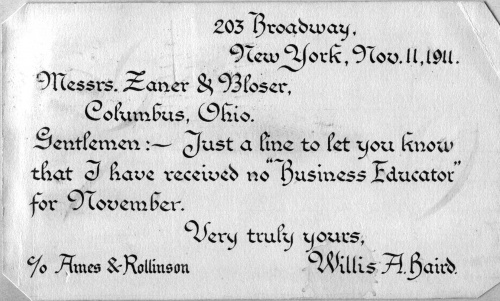 203 Broadway,
New York, Nov. 11, 1911.
Messrs. Zaner & Bloser,
Columbus, Ohio.
Gentlemen:~ Just a line to let you know
that I have received no "Business Educator"
for November.
Very truly yours,
c/o Ames & Rollinson Willis A. Baird.